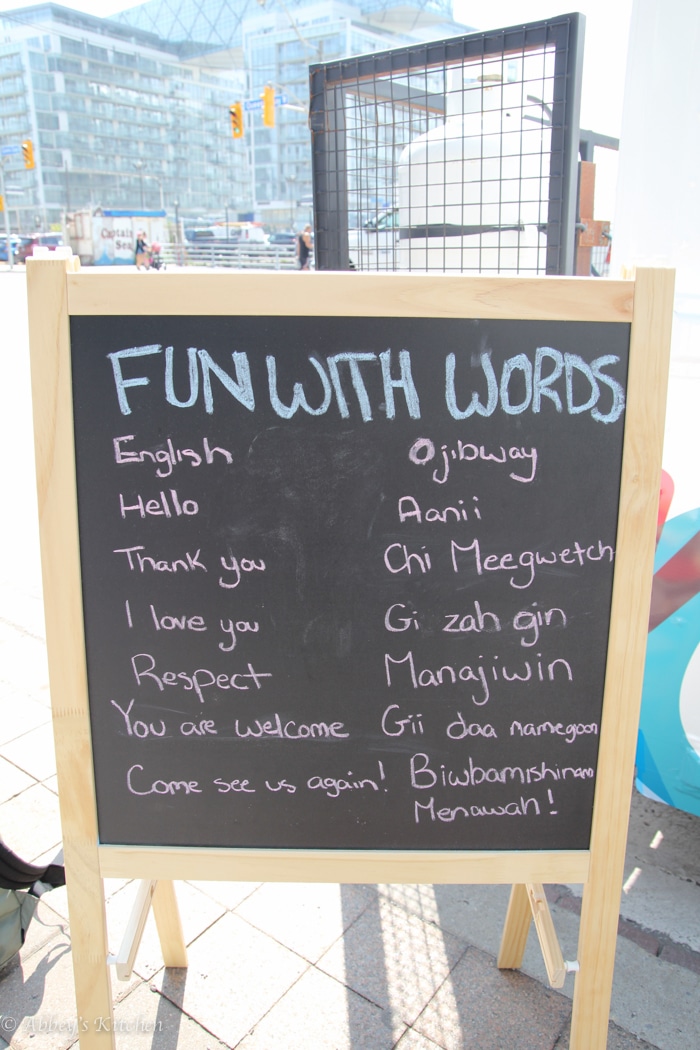 Captain
Sea
FUN WITH WORDS
English Ojibway
Hello Aanii
Thank you Chi Meegwetch
I love you Gi zah gin
Respect Manajiwin
You are welcome Gii daa namegoon
Come see us again! Biwbamishinam
Menawah!
© Abbey's Kitchen